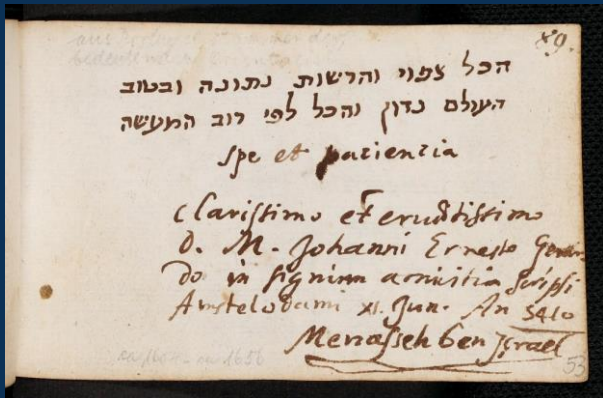 89.
הכל צפוי והרשות נתונה ובטוב
העולם נדון והכל לפי רוב המעשה
Spe et patientia
Clarissimo et eruditissimo
D. M. Johanni Ernesto
do in signum amicitiæ scripsi
Amstelodami XI. Jun. An 5410
Menasseh ben Israel
ca 1604 - ca 1656
53